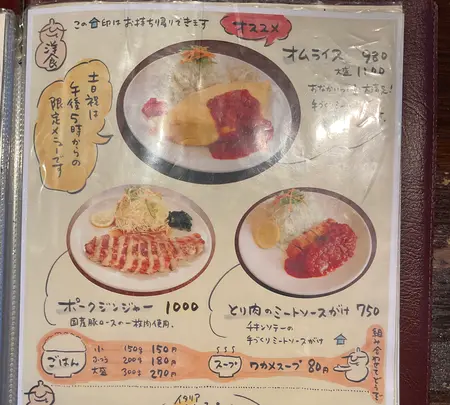 この 印はお持ち帰りできます
オススメ
洋食
オムライス 980
大盛 1100
土日祝は
午後5時からの
限定メニューです
ポークジンジャー 1000
国産豚ロースの一枚肉使用。
とり肉のミートソースがけ 750
チキンソテーの
手づくりミートソースがけ
ごはん
小 150g 150円
ふつう 200g 180円
大盛 300g 270円
スープ
ワカメスープ 80円
組み合わせてどうぞ
イタリア